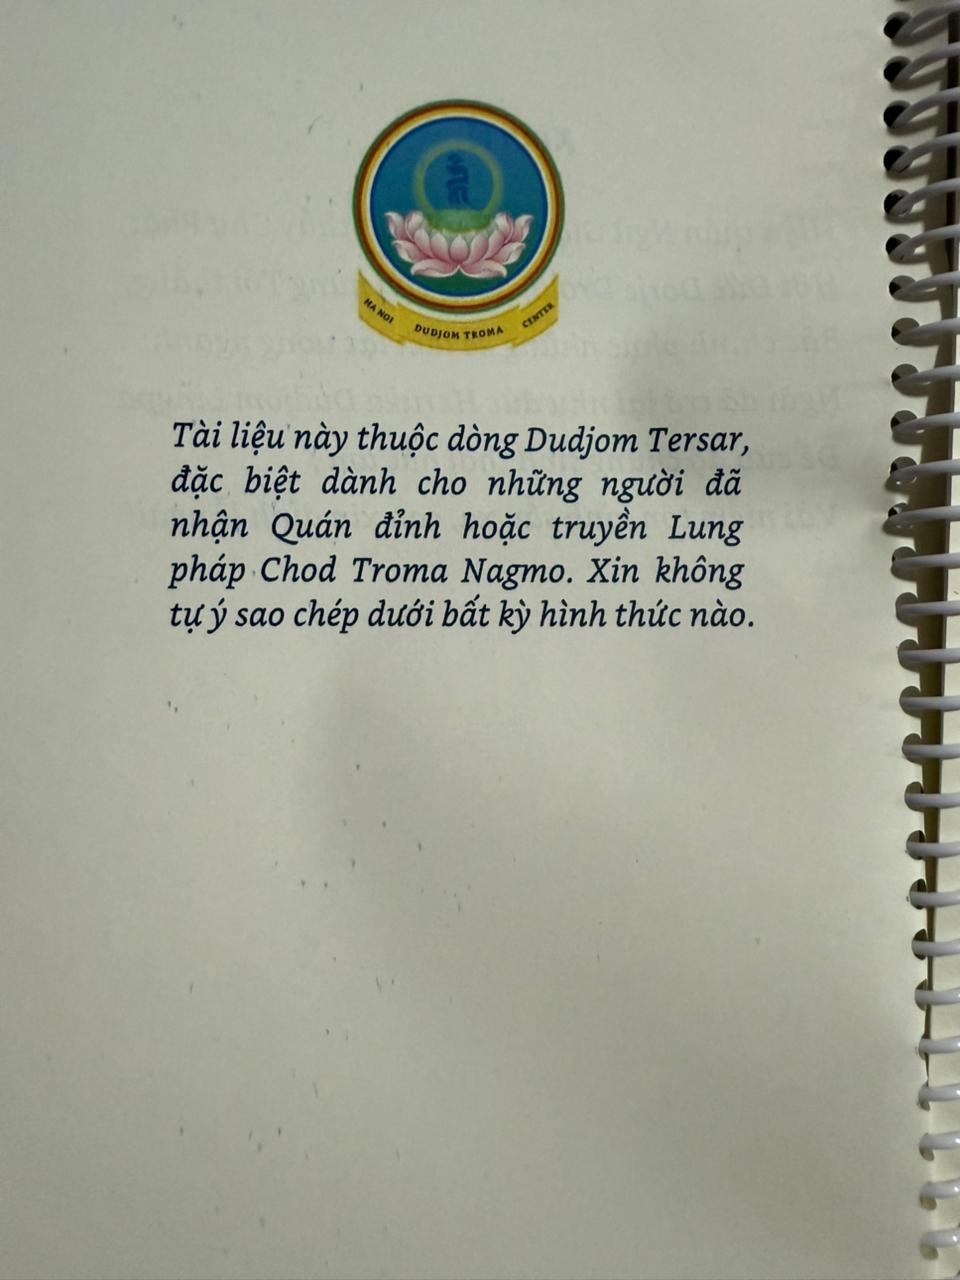 HA NOI DUDJOM TROMA CENTER
Tài liệu này thuộc dòng Dudjom Tersar,
đặc biệt dành cho những người đã
nhận Quán đỉnh hoặc truyền Lung
pháp Chod Troma Nagmo. Xin không
tự ý sao chép dưới bất kỳ hình thức nào.